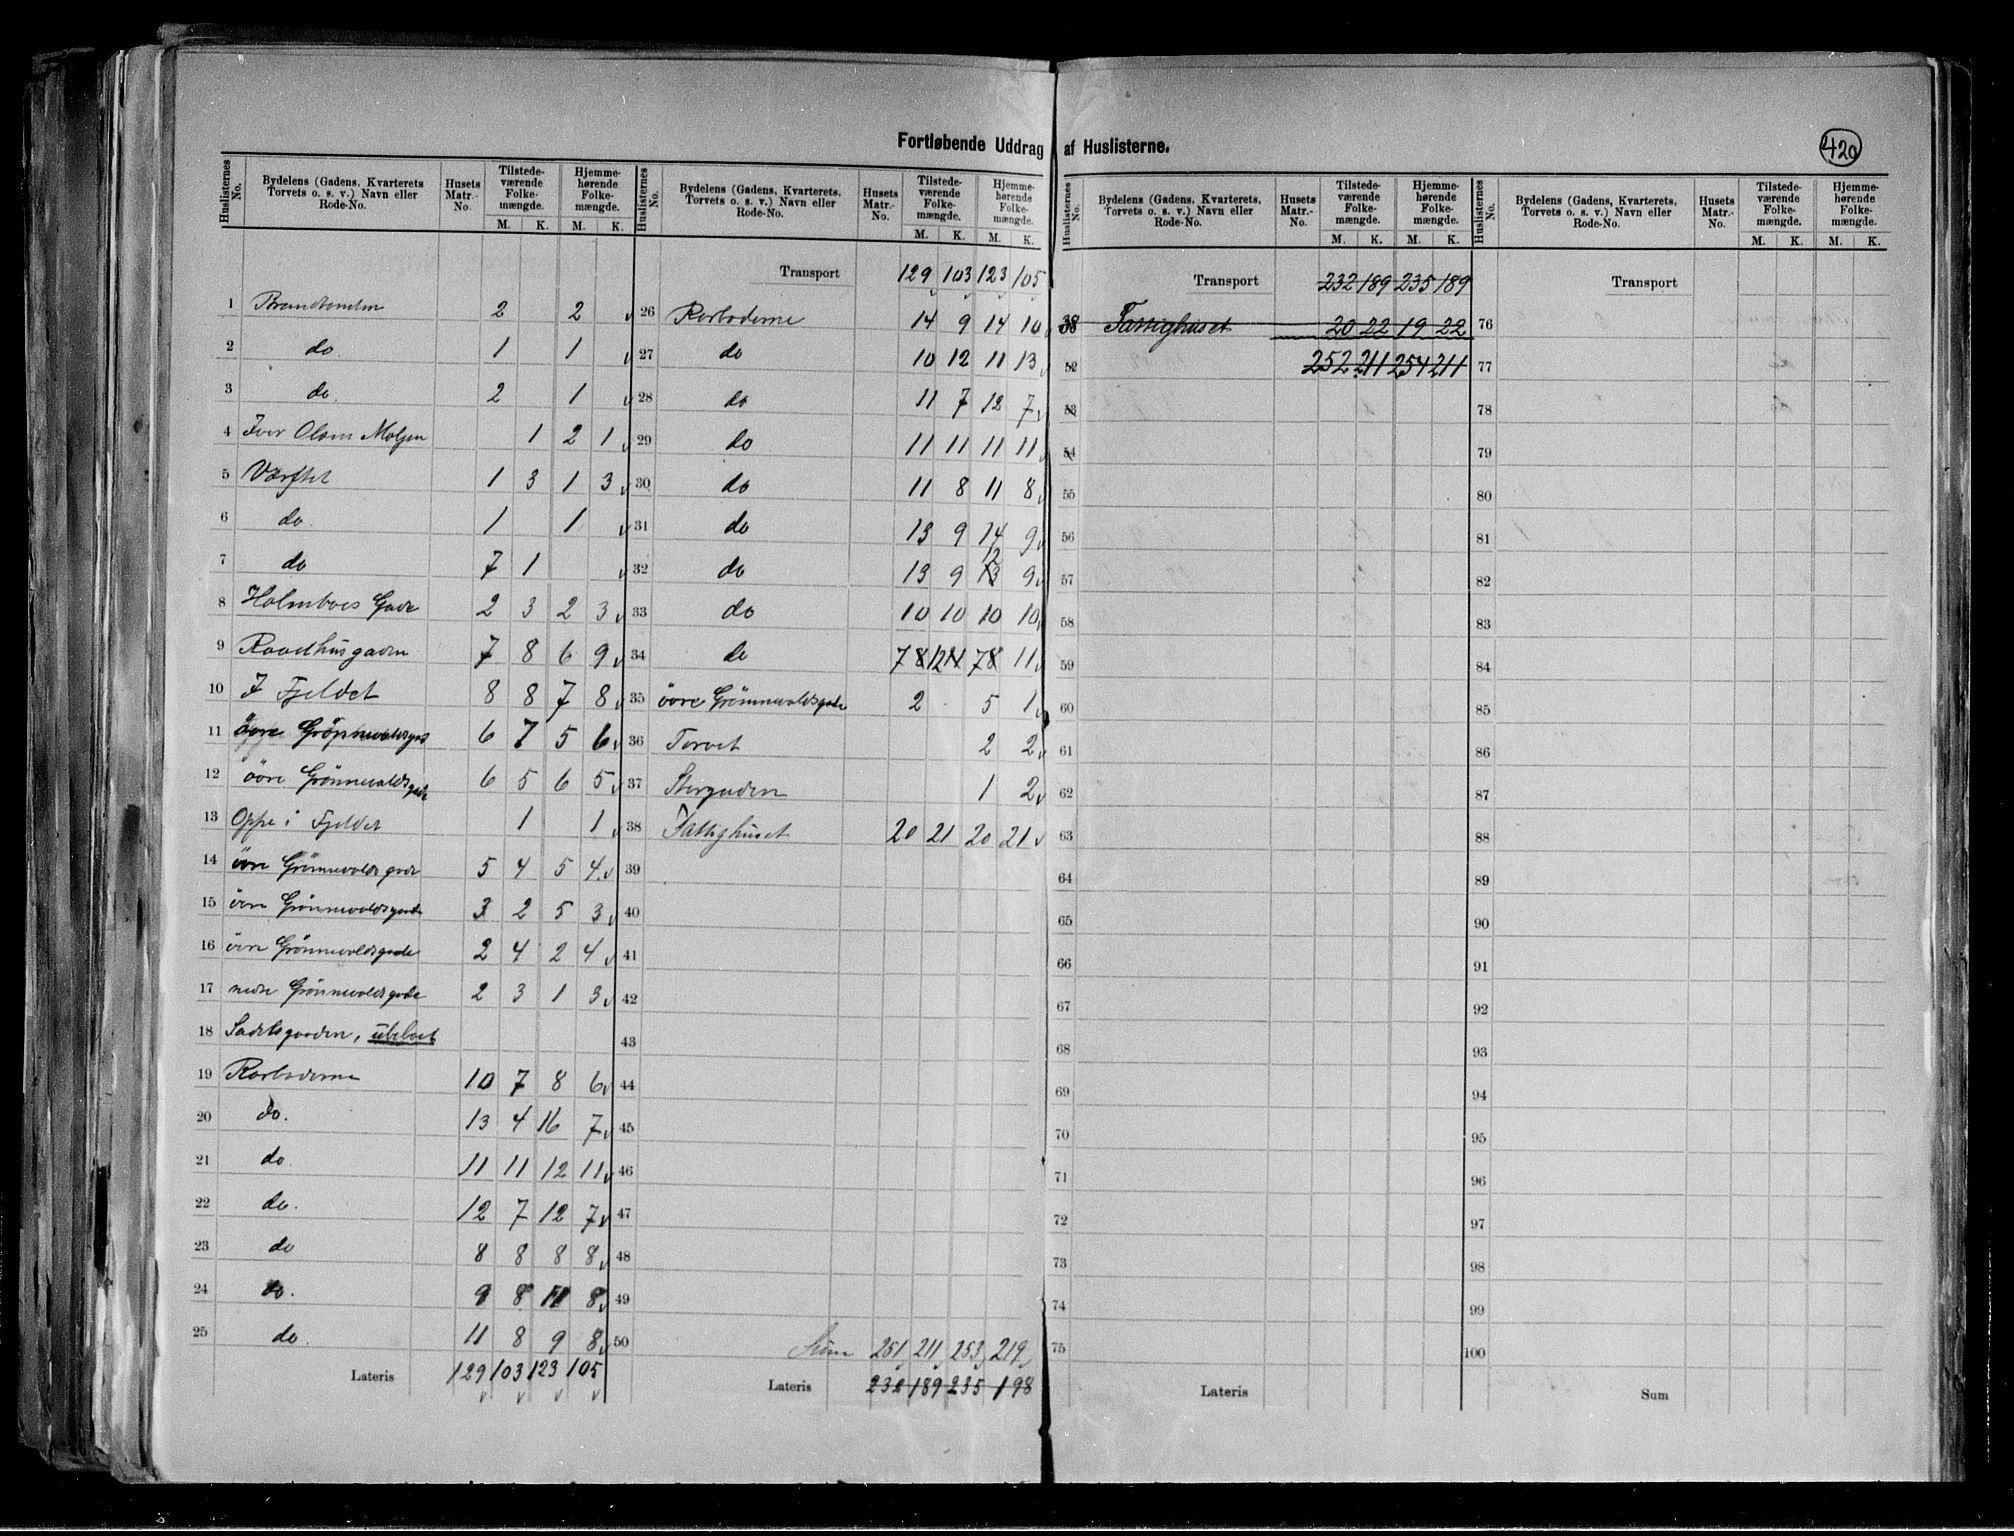 Fortløbende Uddrag af Huslisterne.
420
Huslisternes No. Bydelens (Gadens, Kvarterets Torvets o. s. v.) Navn eller Rode-No. Husets Matr.-No. Tilstedeværende Folkemængde. M. K. Hjemmehørende Folkemængde. M. K.
1 2 2
2 do. 1 1
3 do. 2 1
4 Iver Olsen Moljen 1 2 1
5 Værftet 1 3 1 3
6 do. 1 1
7 do 7 1
8 Holmboes Gade 2 3 2 3
9 Raadhusgaden 7 8 6 9
10 I Fjeldet 8 8 7 8
11 övre Grönnevoldsgad 6 7 5 6
12 övre Grönnevoldsgade 6 5 6 5
13 Oppe i Fjeldet 1 1
14 övre Grönnevoldsgade 5 4 5 4
15 övre Grönnevoldsgade 3 2 5 3
16 övre Grönnevoldsgade 2 4 2 4
17 nedre Grönnevoldsgade 2 3 1 3
18 ubeboet
19 Rorboderne 10 7 8 6
20 do. 13 4 16 7
21 do. 11 11 12 11
22 do. 12 7 12 7
23 do 8 8 8 8
24 do. 9 8 11 8
25 do. 11 8 9 8
Lateris 129 103 123 105
Huslisternes No. Bydelens (Gadens, Kvarterets, Torvets o. s. v.) Navn eller Rode-No. Husets Matr.-No. Tilstedeværende Folkemængde. M. K. Hjemmehørende Folkemængde. M. K.
Transport 129 103 123 105
26 Rorboderne 14 9 14 10
27 do 10 12 11 13
28 do 11 7 12 7
29 do 11 11 11 11
30 do 11 8 11 8
31 do 13 9 14 9
32 do 13 9 12 9
33 do 10 10 10 10
34 do 7 8 12 11 7 8 11
35 övre Grönnevoldsgade 2 5 1
36 Torvet 2 2
37 Storgaden 1 2
38 Fattighuset 20 21 20 21
39
40
41
42
43
44
45
46
47
48
49
50 Sum 251 211 253 219
Lateris 232 189 235 198
Huslisternes No. Bydelens (Gadens, Kvarterets Torvets o. s. v.) Navn eller Rode-No. Husets Matr.-No. Tilstedeværende Folkemængde. M. K. Hjemmehørende Folkemængde. M. K.
Transport 232 189 235 189
38 Fattighuset 20 22 19 22
52 252 211 254 211
53
54
55
56
57
58
59
60
61
62
63
64
65
66
67
68
69
70
71
72
73
74
75
Lateris
Huslisternes No. Bydelens (Gadens, Kvarterets Torvets o. s. v.) Navn eller Rode-No. Husets Matr.-No. Tilstedeværende Folkemængde. M. K. Hjemmehørende Folkemængde. M. K.
Transport
76
77
78
79
80
81
82
83
84
85
86
87
88
89
90
91
92
93
94
95
96
97
98
99
100
Sum